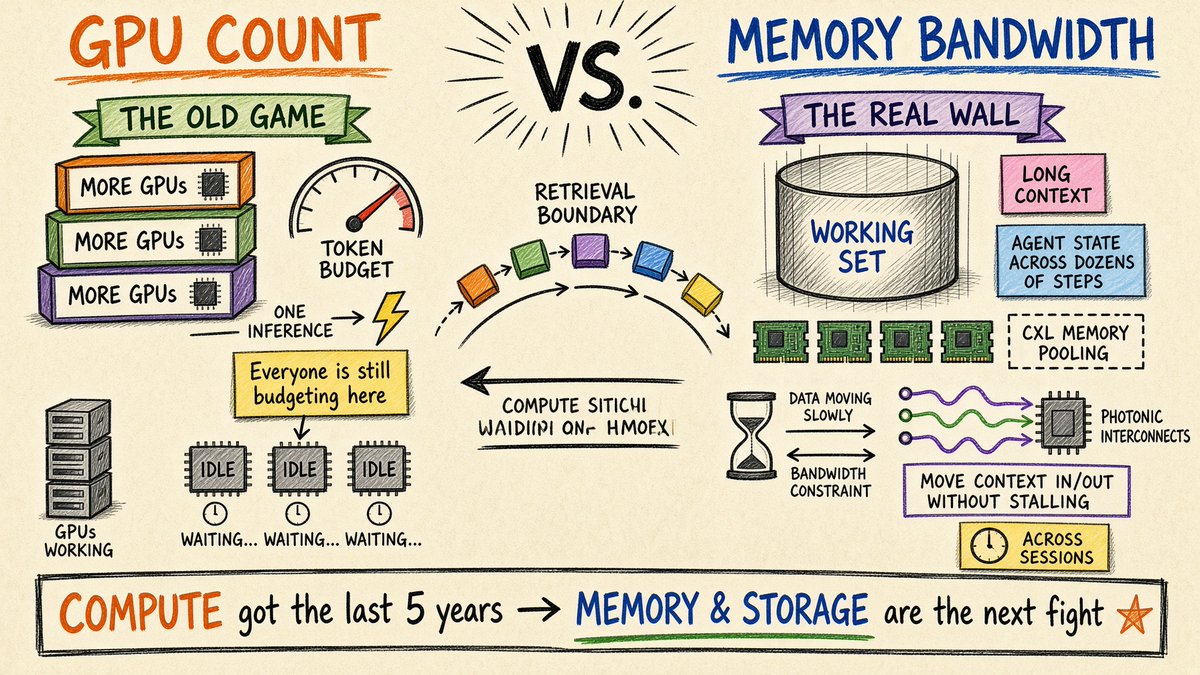 GPU COUNT
VS.
MEMORY BANDWIDTH
THE OLD GAME
MORE GPUs
MORE GPUs
MORE GPUs
TOKEN
BUDGET
ONE
INFERENCE
Everyone is still
budgeting here
IDLE
IDLE
IDLE
WAITING...
WAITING...
WAITING...
GPUs
WORKING
RETRIEVAL
BOUNDARY
COMPUTE
THE REAL WALL
WORKING
SET
LONG
CONTEXT
AGENT STATE
ACROSS DOZENS
OF STEPS
CXL MEMORY
POOLING
DATA MOVING
SLOWLY
BANDWIDTH
CONSTRAINT
PHOTONIC
INTERCONNECTS
MOVE CONTEXT IN/OUT
WITHOUT STALLING
ACROSS
SESSIONS
COMPUTE got the last 5 years → MEMORY & STORAGE are the next fight